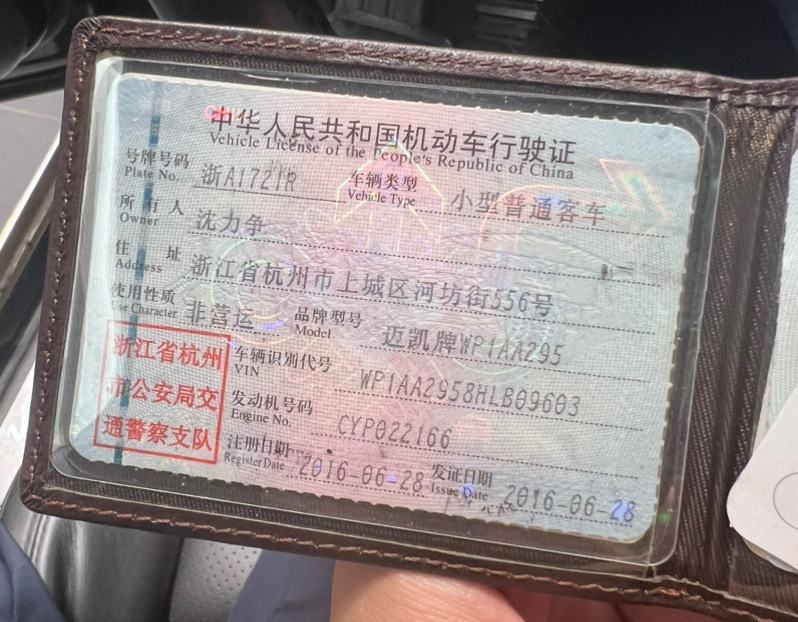 中华人民共和国机动车行驶证
Vehicle License of the People's Republic of China
号牌号码 浙A1721R 车辆类型 小型普通客车
Plate No. Vehicle Type
所有人 沈力争
Owner
住址 浙江省杭州市上城区河坊街556号
Address
使用性质 非营运 品牌型号 迈凯牌WP1AA295
Use Character Model
浙江省杭州
市公安局交
通警察支队
车辆识别代号 WP1AA2958HLB09603
VIN
发动机号码 CYP022166
Engine No.
注册日期 2016-06-28 发证日期 2016-06-28
Register Date Issue Date